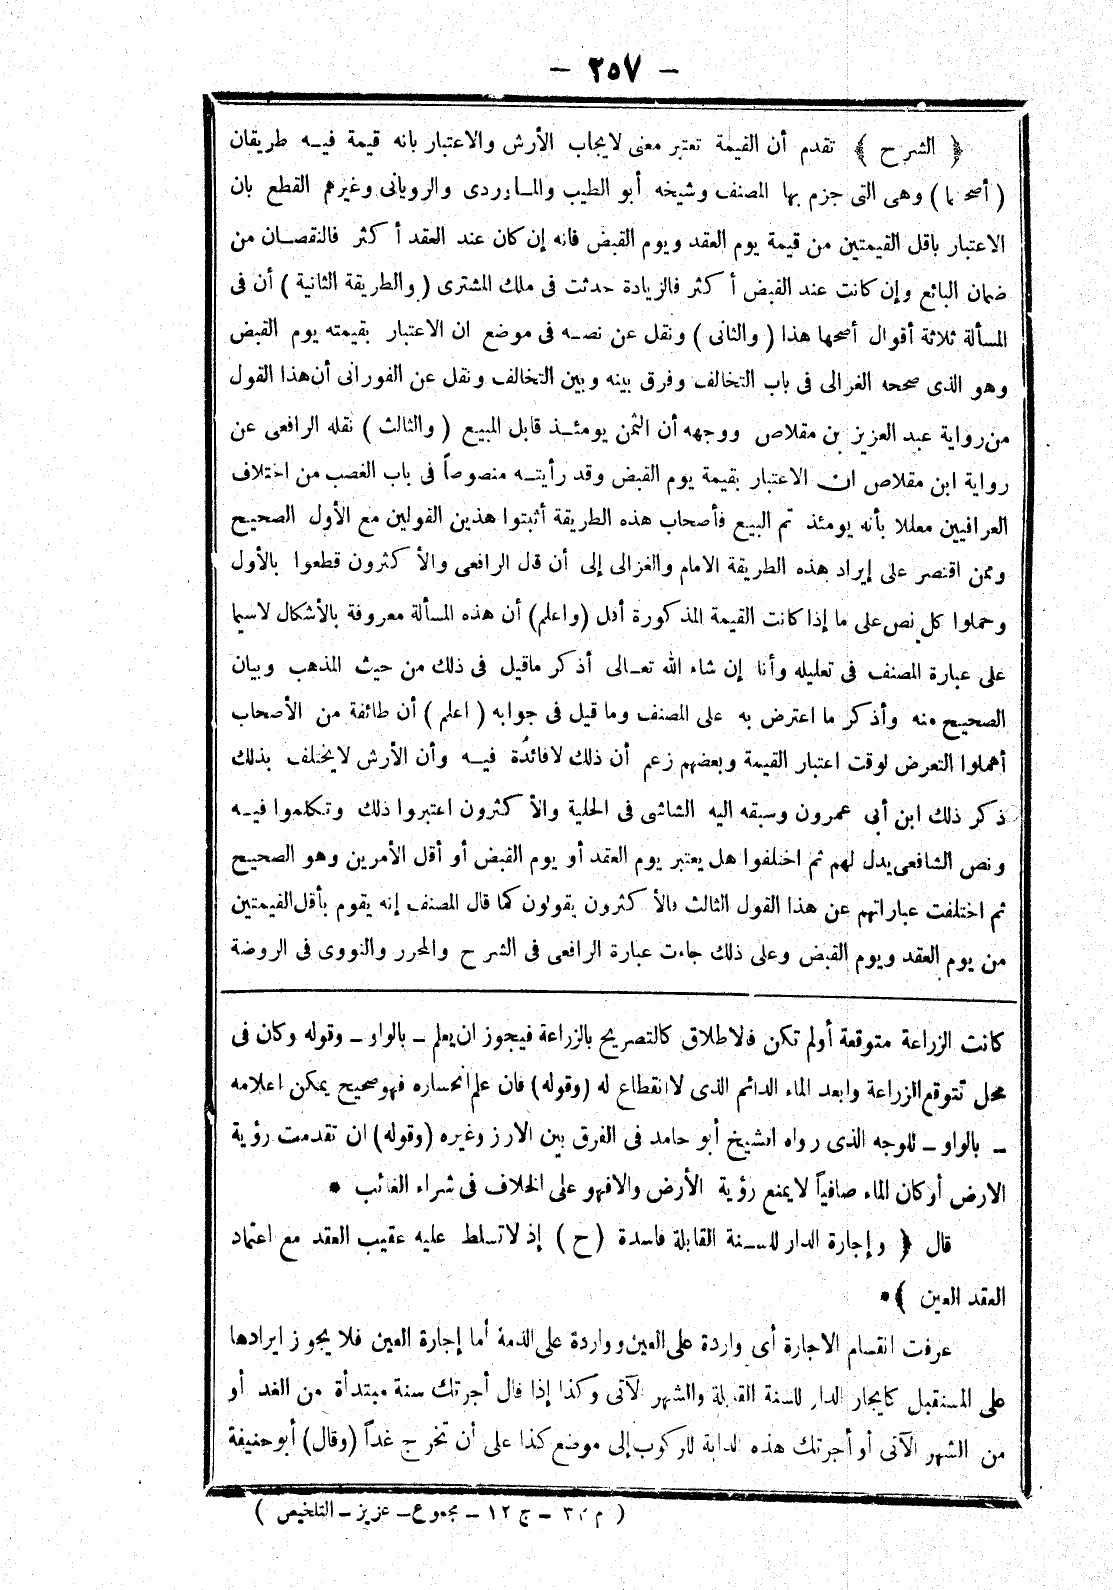 — ٢٥٧ —
﴿ الشرح ﴾ تقدم أن القيمة تعتبر معنى لايجاب الأرش والاعتبار بانه قيمة فيـه طريقان
( أصحها ) وهى التى جزم بها المصنف وشيخه أبو الطيب والماوردى والرويانى وغيرهم القطع بان
الاعتبار باقل القيمتين من قيمة يوم العقد ويوم القبض فانه إن كان عند العقد أكثر فالنقصـان من
ضمان البائع وإن كانت عند القبض أكثر فالزيادة حدثت فى ملك المشترى ( والطريقة الثانية ) أن فى
المسألة ثلاثة أقوال أصحها هذا ( والثانى ) ونقل عن نصـه فى موضع ان الاعتبار بقيمته يوم القبض
وهو الذى صححه الغزالى فى باب التخالف وفرق بينه وبين التخالف ونقل عن الفورانى أن هذا القول
من رواية عبد العزيز بن مقلاص ووجهه أن الثمن يومئـذ قابل المبيع ( والثالث ) نقله الرافعى عن
رواية ابن مقلاص ان الاعتبار بقيمة يوم القبض وقد رأيتـه منصوصاً فى باب الغصب من اختلاف
العراقيين معللا بأنه يومئذ تم البيع فأصحاب هذه الطريقة أثبتوا هذين القولين مع الأول الصحيح
وممن اقتصر على إيراد هذه الطريقة الامام والغزالى إلى أن قل الرافعى والأكثرون قطعوا بالأول
وحملوا كل نص على ما إذا كانت القيمة المذكورة أقل (واعلم) أن هذه المسألة معروفة بالأشكال لاسيما
على عبارة المصنف فى تعليله وأنا إن شاء الله تعـالى أذكر ماقيل فى ذلك من حيث المذهب وبيان
الصحيح منه وأذكر ما اعترض به على المصنف وما قيل فى جوابه ( اعلم ) أن طائفة من الأصحاب
أهملوا التعرض لوقت اعتبار القيمة وبعضهم زعم أن ذلك لافائدة فيـه وأن الأرش لايختلف بذلك
ذكر ذلك ابن أبى عمرون وسبقه اليه الشاشى فى الحلية والأكثرون اعتبروا ذلك وتكلموا فيـه
ونص الشافعى يدل لهم ثم اختلفوا هل يعتبر يوم العقد أو يوم القبض أو أقل الأمرين وهو الصحيح
ثم اختلفت عباراتهم عن هذا القول الثالث فالأكثرون يقولون كما قال المصنف إنه يقوم بأقل القيمتين
من يوم العقد ويوم القبض وعلى ذلك جاءت عبارة الرافعى فى الشرح والمحرر والنووى فى الروضة
كانت الزراعة متوقعة أولم تكن فالاطلاق كالتصريح بالزراعة فيجوز ان يعلم ـ بالواو ـ وقوله وكان فى
محل تتوقع الزراعة وابعد الماء الدائم الذى لا انقطاع له (وقوله) فان علم انحساره فهو صحيح يمكن اعلامه
ـ بالواو ـ للوجه الذى رواه الشيخ أبو حامد فى الفرق بين الارز وغيره (وقوله) ان تقدمت رؤية
الارض أوكان الماء صافياً لايمنع رؤية الأرض والافهو على الخلاف فى شراء الغائب *
قال ﴿ وإجارة الدار للسـنة القابلة فاسدة (ح) إذ لاتسلط عليه عقيب العقد مع اعتماد
العقد العين ﴾ *
عرفت انقسام الاجارة أى واردة على العين وواردة على الذمة أما إجارة العين فلا يجوز ايرادها
على المستقبل كايجار الدار للسنة القابلة والشهر الآتى وكذا إذا قال أجرتك سنة مبتدأة من الغد أو
من الشهر الآتى أو أجرتك هذه الدابة للركوب إلى موضع كذا على أن تخرج غداً (وقال) أبو حنيفة
( م ٣٣ ـ ج ١٢ ـ مجموع ـ عزيز ـ التلخيص )